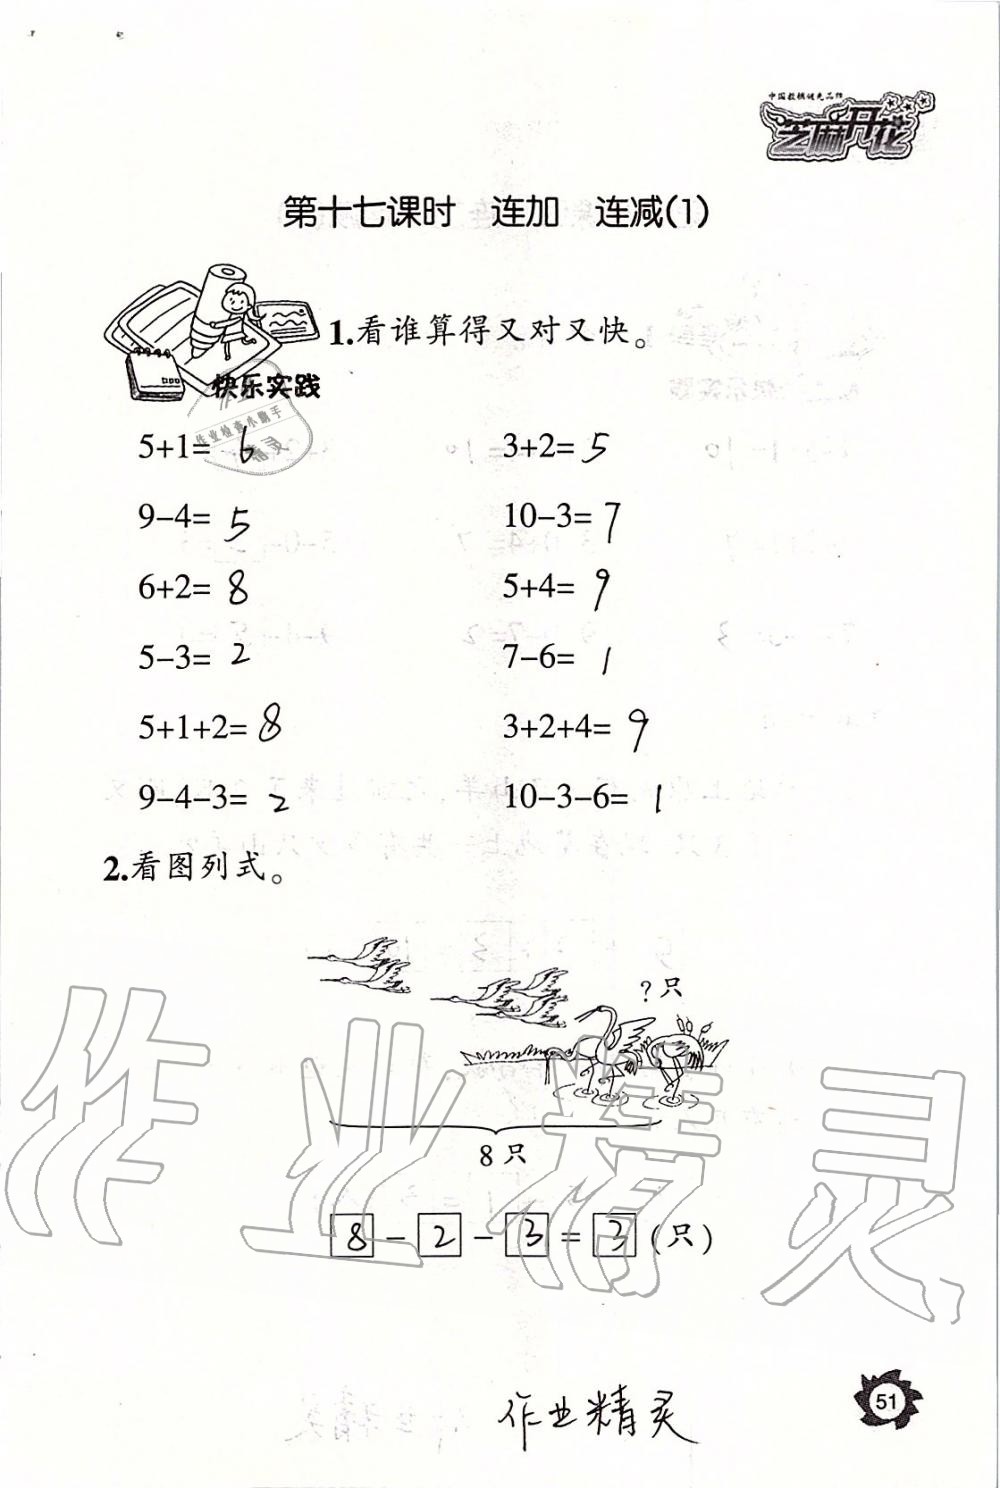 中国教辅领先品牌
芝麻开花
第十七课时 连加 连减(1)
快乐实践
1.看谁算得又对又快。
作业检查小助手
精灵
5+1= 6 3+2= 5
9-4= 5 10-3= 7
6+2= 8 5+4= 9
5-3= 2 7-6= 1
5+1+2= 8 3+2+4= 9
9-4-3= 2 10-3-6= 1
2.看图列式。
?只
8只
8 - 2 - 3 = 3 (只)
作业精灵
作业精灵
51